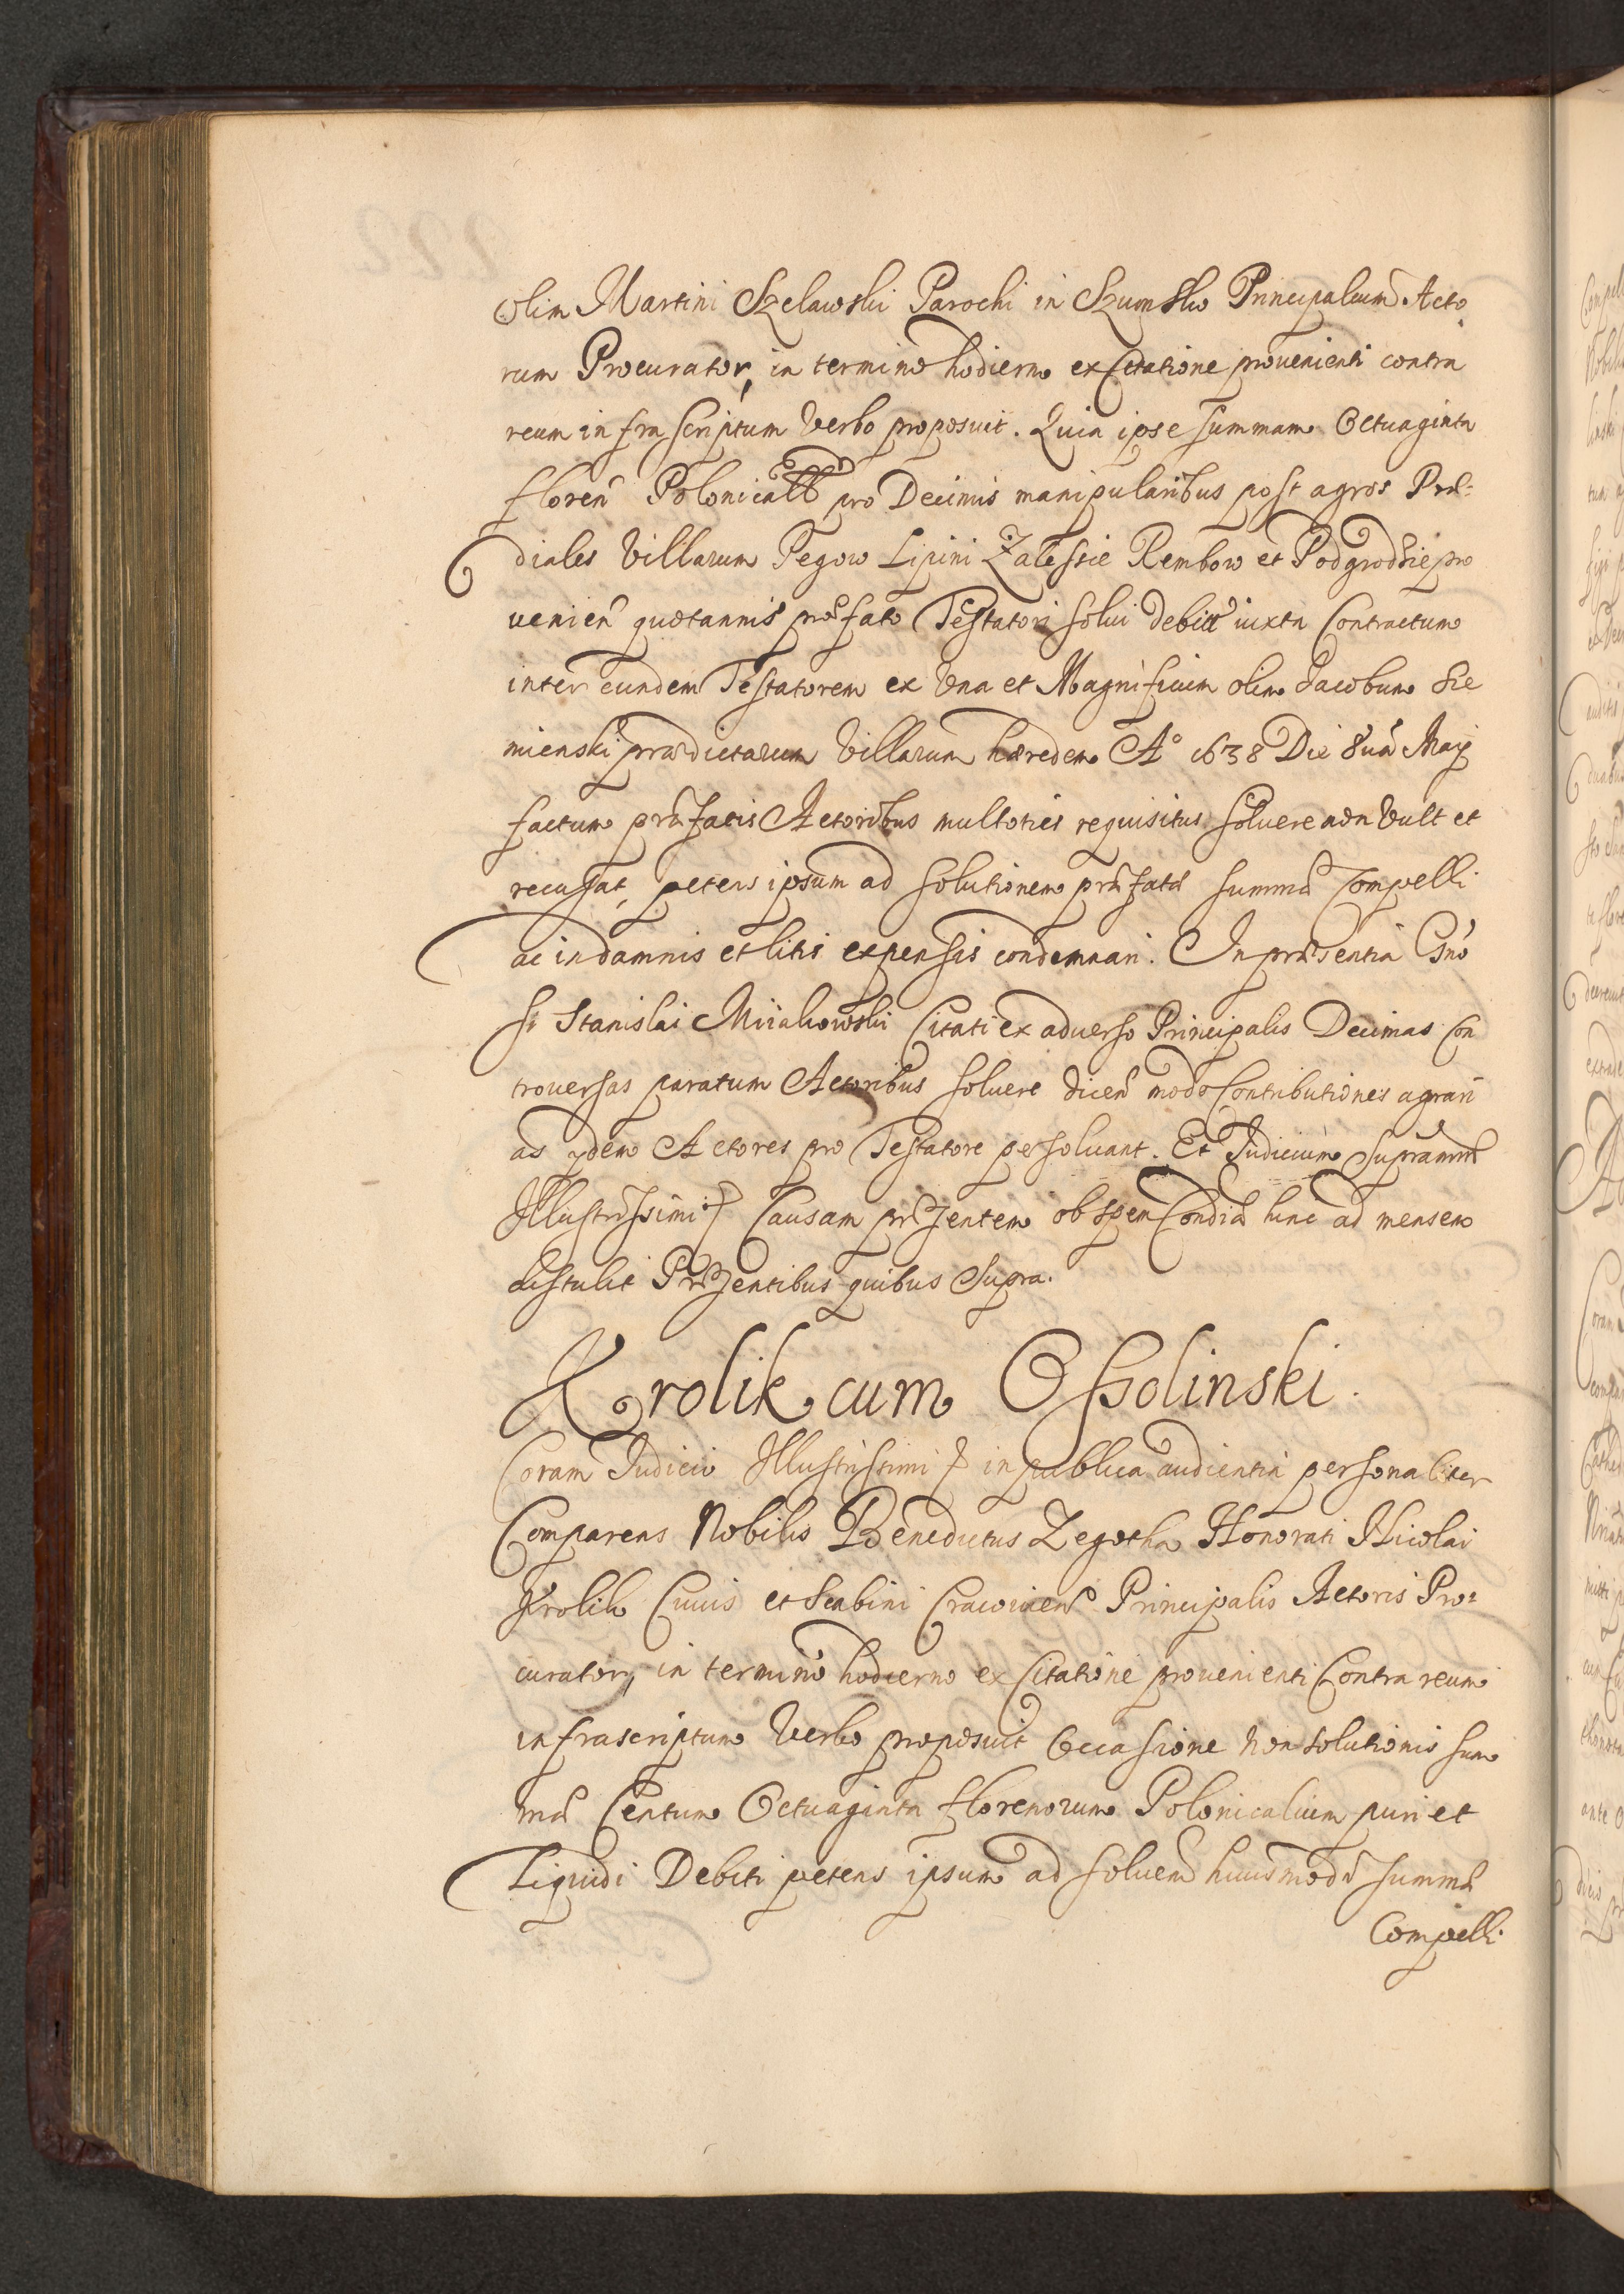 olim Martini Szelawski Parochi in Szumsko Principalium Acto
rum Procurator, in termino hodierno ex Citatione provenienti contra
reum infra scriptum Verbo proposuit. Quia ipse summam Octuaginta
floren Polonicall pro Decimis manipularibus post agros Præ-
diales Villarum Pegow Lipini Zalessie Rembow et Podgrodzie pro
venien quotannis præfato Testatori solui debitt iuxta Contractum
inter eundem Testatorem ex Vna et Magnificum olim Jacobum Sie
mienski prædictarum Villarum hæredem Aº 1638 Die 8ua Maij
factum præfatis Actoribus multoties requisitus soluere non Vult et
recusat, petens ipsum ad solutionem præfatæ summæ Compelli
ac in damnis et litis expensis condemnari. In præsentia Gnō
si Stanislai Miiakowski Citati ex aduerso Principalis Decimas Con
trouersas paratum Actoribus soluere dicen modo Contributiones agrari
as ydem Actores pro Testatore persoluant. Et Judicium Supramm
Illustrissimi Causam præsentem ob spem Condiæ hinc ad mensem
distulit Præsentibus quibus Supra.
Krolik cum Ossolinski.
Coram Judicio Illustrissimi in publica audientia personaliter
Comparens Nobilis Benedictus Zegotha Honorati Nicolai
Krolik Ciuis et Scabini Cracouien Principalis Actoris Pro-
curator, in termino hodierno ex Citatione prouenienti Contra reum
infrascriptum Verbo proposuit Occasione non solutionis sum
mæ Centum Octuaginta florenorum Polonicalium puri et
Liquidi Debiti petens ipsum ad soluend huiusmodi summæ
Compelli